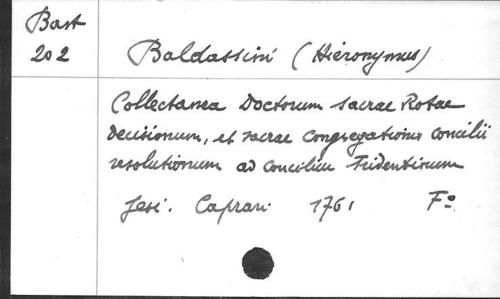 Bast
202
Baldassini (Hieronymus)
Collectanea Doctorum sacrae Rotae
decisionum, et sacrae Congregationis Concilii
resolutionum ad Concilium Tridentinum
Jesi. Caprari 1761 Fº